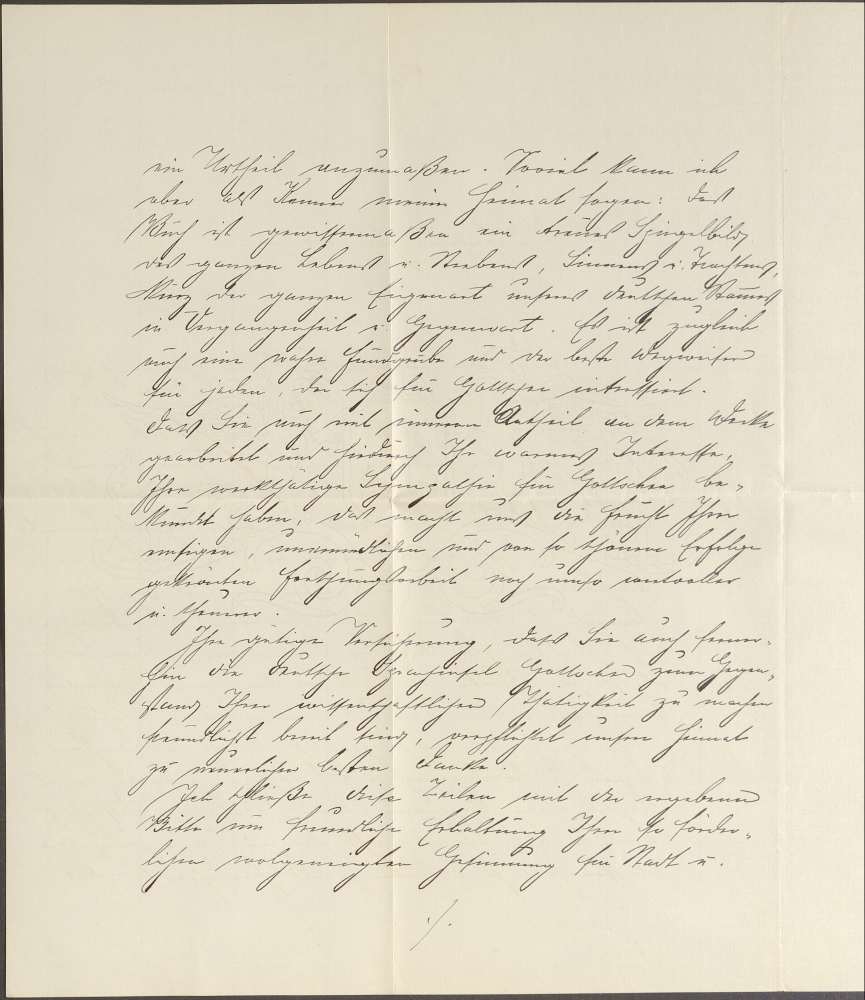 ein Urtheil anzumaßen. Soviel kann ich
aber als Kenner meiner Heimat sagen: das
Buch ist gewissermaßen ein treues Spiegelbild
des ganzen Lebens u. Strebens, Sinnens u. Trachtens,
kurz der ganzen Eigenart unseres deutschen Stammes
in Vergangenheit u. Gegenwart. Es ist zugleich
auch eine wahre Fundgrube und der beste Wegweiser
für jeden, der sich für Gottschee interessiert.
Dass Sie auch mit innerem Antheil an dem Werke
gearbeitet und hiedurch Ihr warmes Interesse,
Ihre werkthätige Sympathie für Gottschee be-
kundet haben, das macht uns die Frucht Ihrer
emsigen, unermüdlichen und von so schönem Erfolge
gekrönten Forschungsarbeit noch umso wertvoller
u. theurer.
Ihre gütige Versicherung, dass Sie auch ferner-
hin die deutsche Sprachinsel Gottschee zum Gegen-
stand Ihrer wissenschaftlichen Thätigkeit zu machen
freundlichst bereit sind, verpflichtet unsere Heimat
zu neuerlichem besten Danke.
Ich schließe diese Zeilen mit der ergebenen
Bitte um freundliche Erhaltung Ihrer so förder-
lichen wolgeneigten Gesinnung für Stadt u.
./.